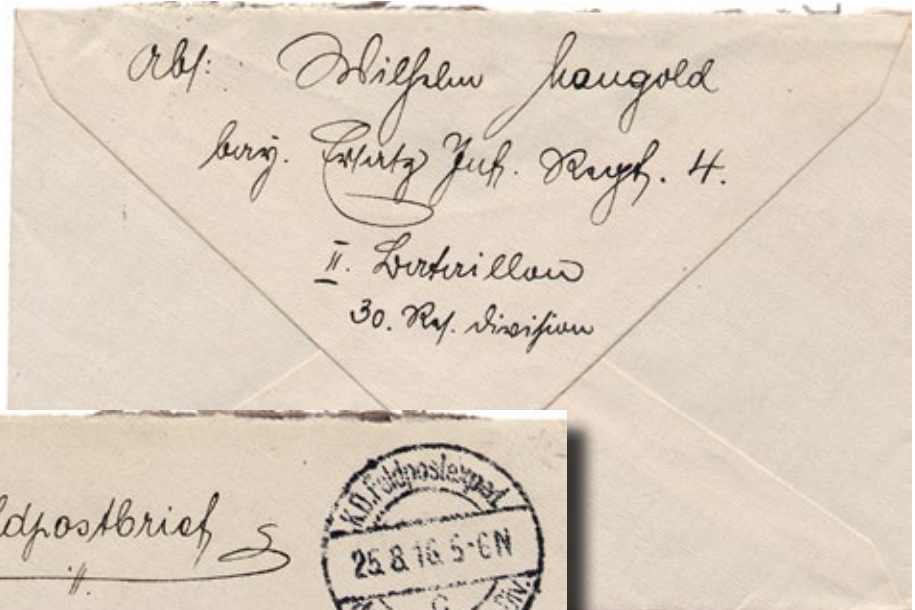 Abs: Wilhelm Mangold
bay. Ersatz Inf. Regt. 4.
II. Bataillon
30. Res. Division
ldpostbrief
K.D. Feldpostexped.
25.8.16. 5-6 N
C
Div.